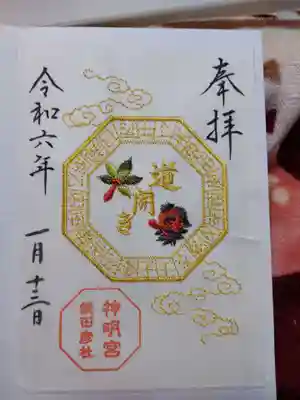 奉拝
道開き
令和六年
一月十三日
神明宮
猿田彦社